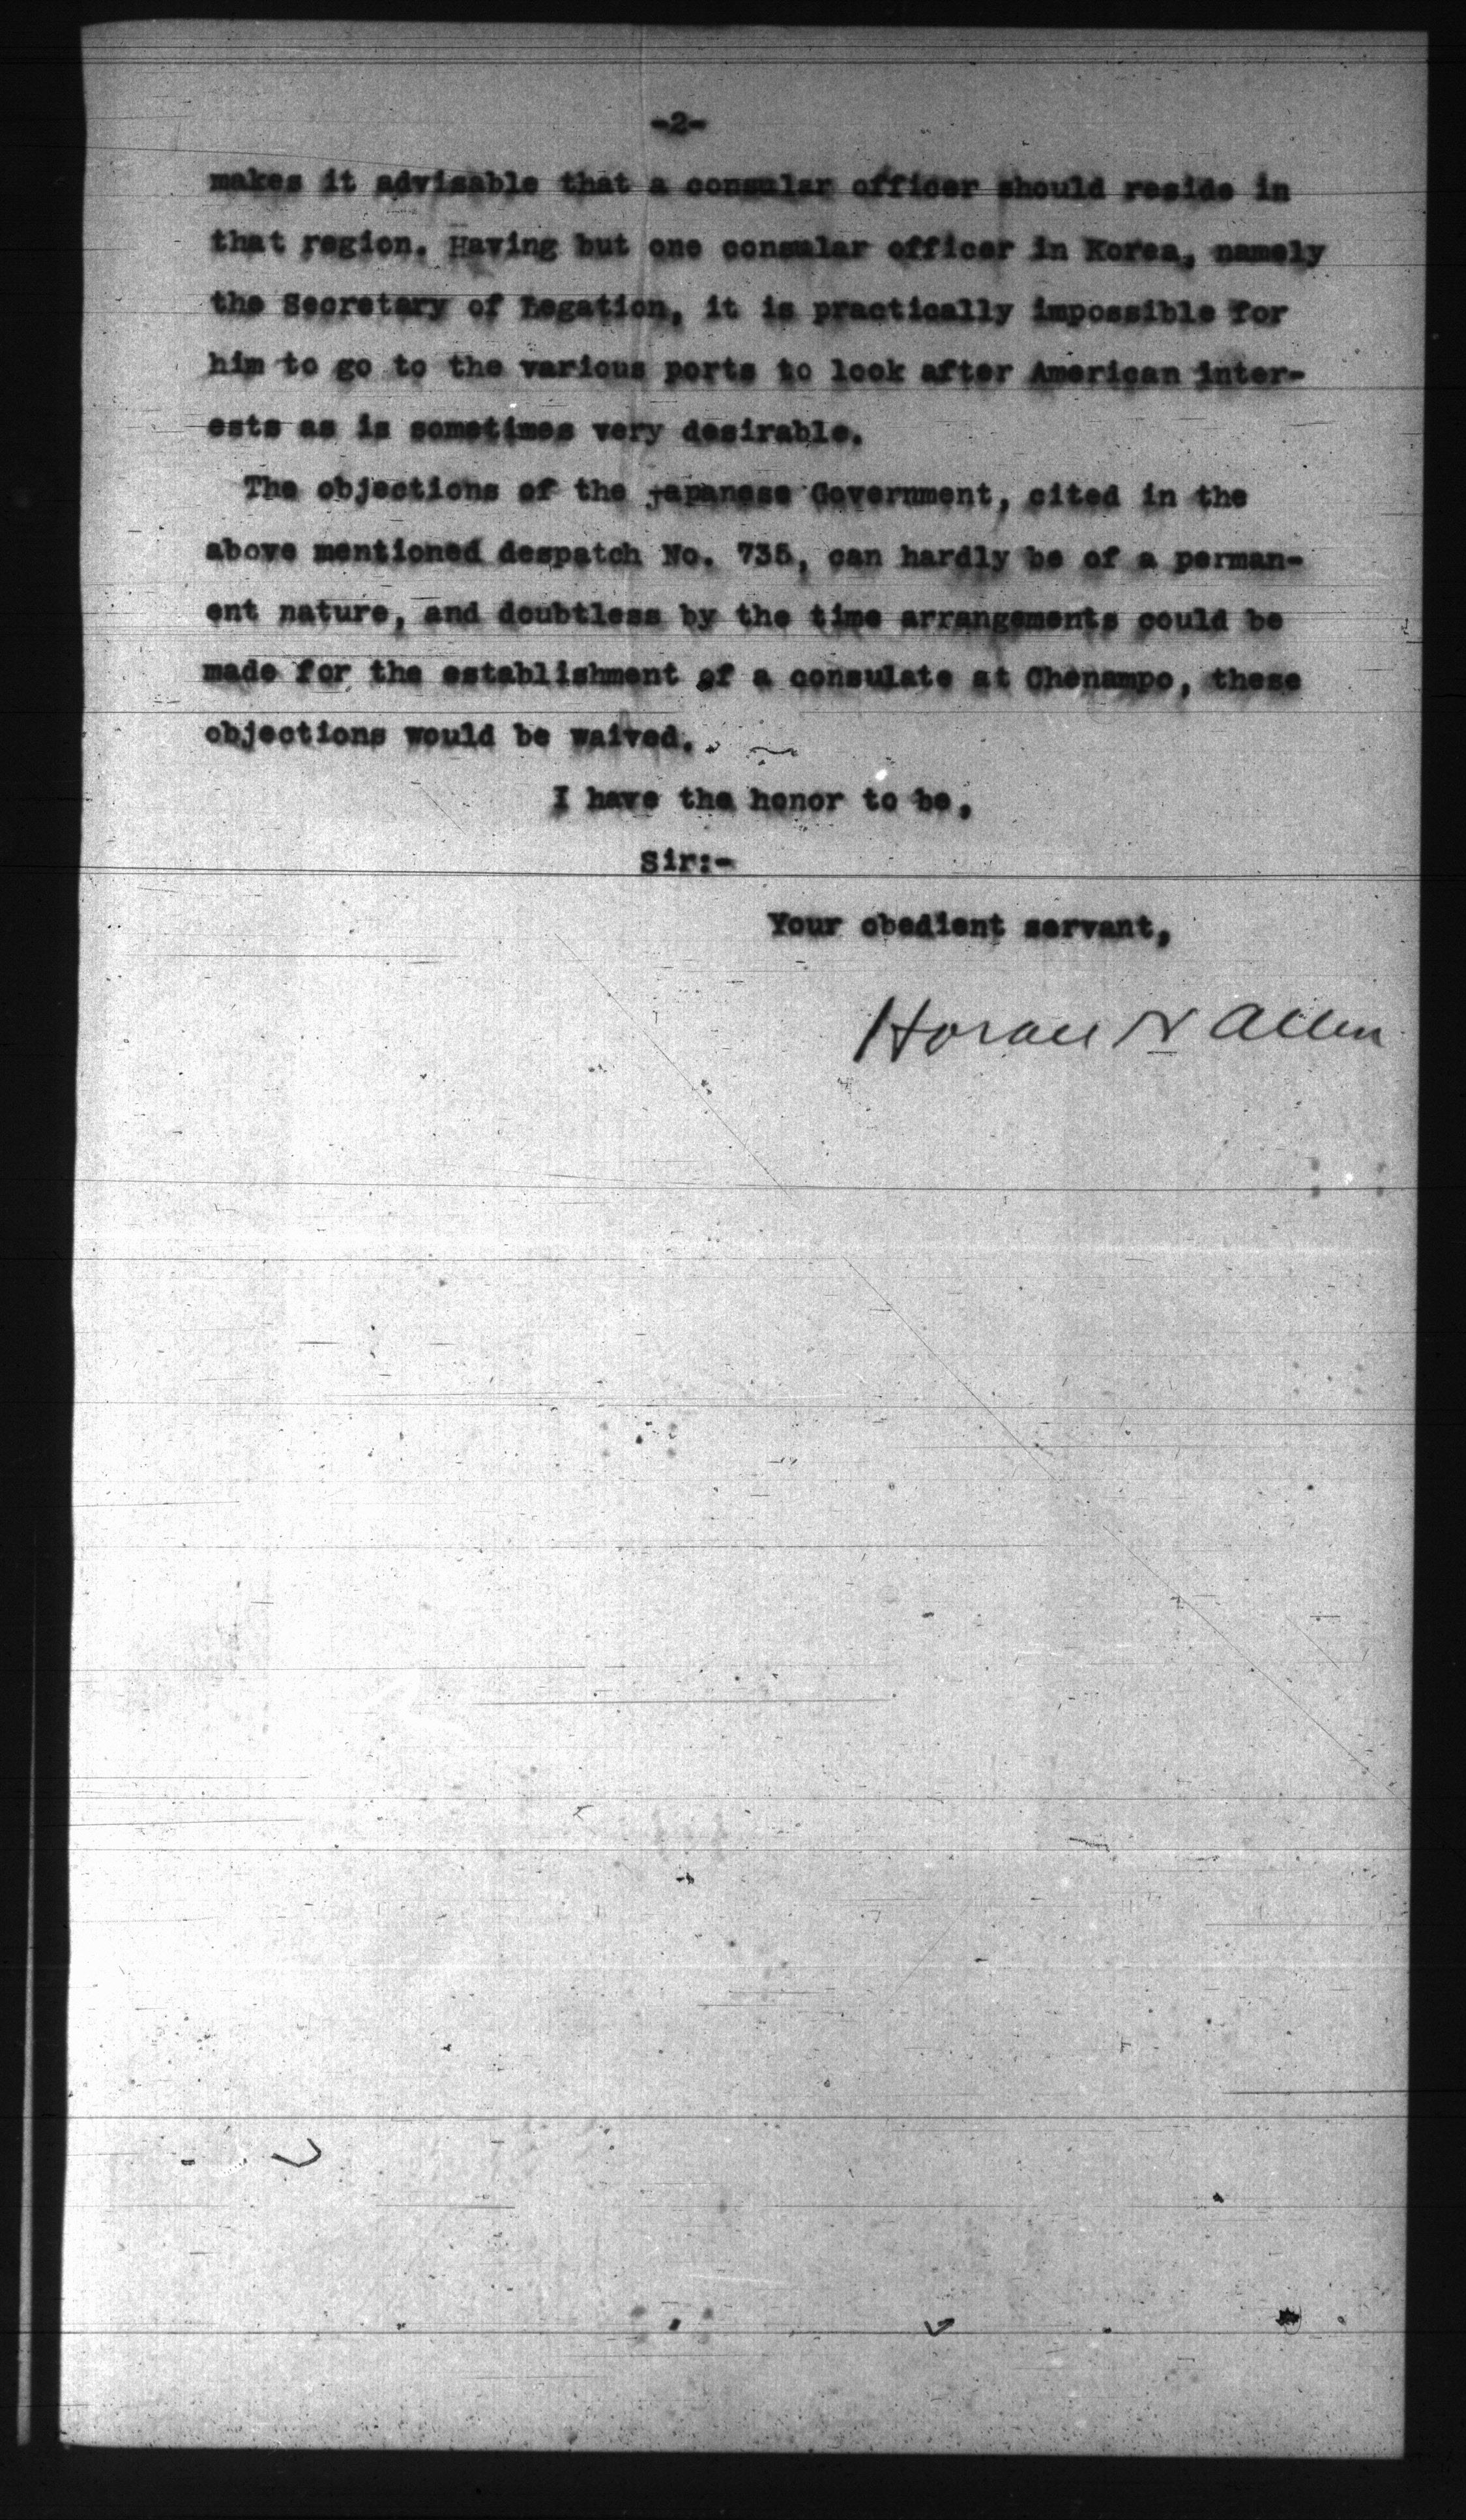 -2-
makes it advisable that a consular officer should reside in
that region. Having but one consular officer in Korea, namely
the Secretary of Legation, it is practically impossible for
him to go to the various ports to look after American inter-
ests as is sometimes very desirable.
The objections of the Japanese Government, cited in the
above mentioned despatch No. 735, can hardly be of a perman-
ent nature, and doubtless by the time arrangements could be
made for the establishment of a consulate at Chenampo, these
objections would be waived.
I have the honor to be,
Sir:-
Your obedient servant,
Horace N Allen